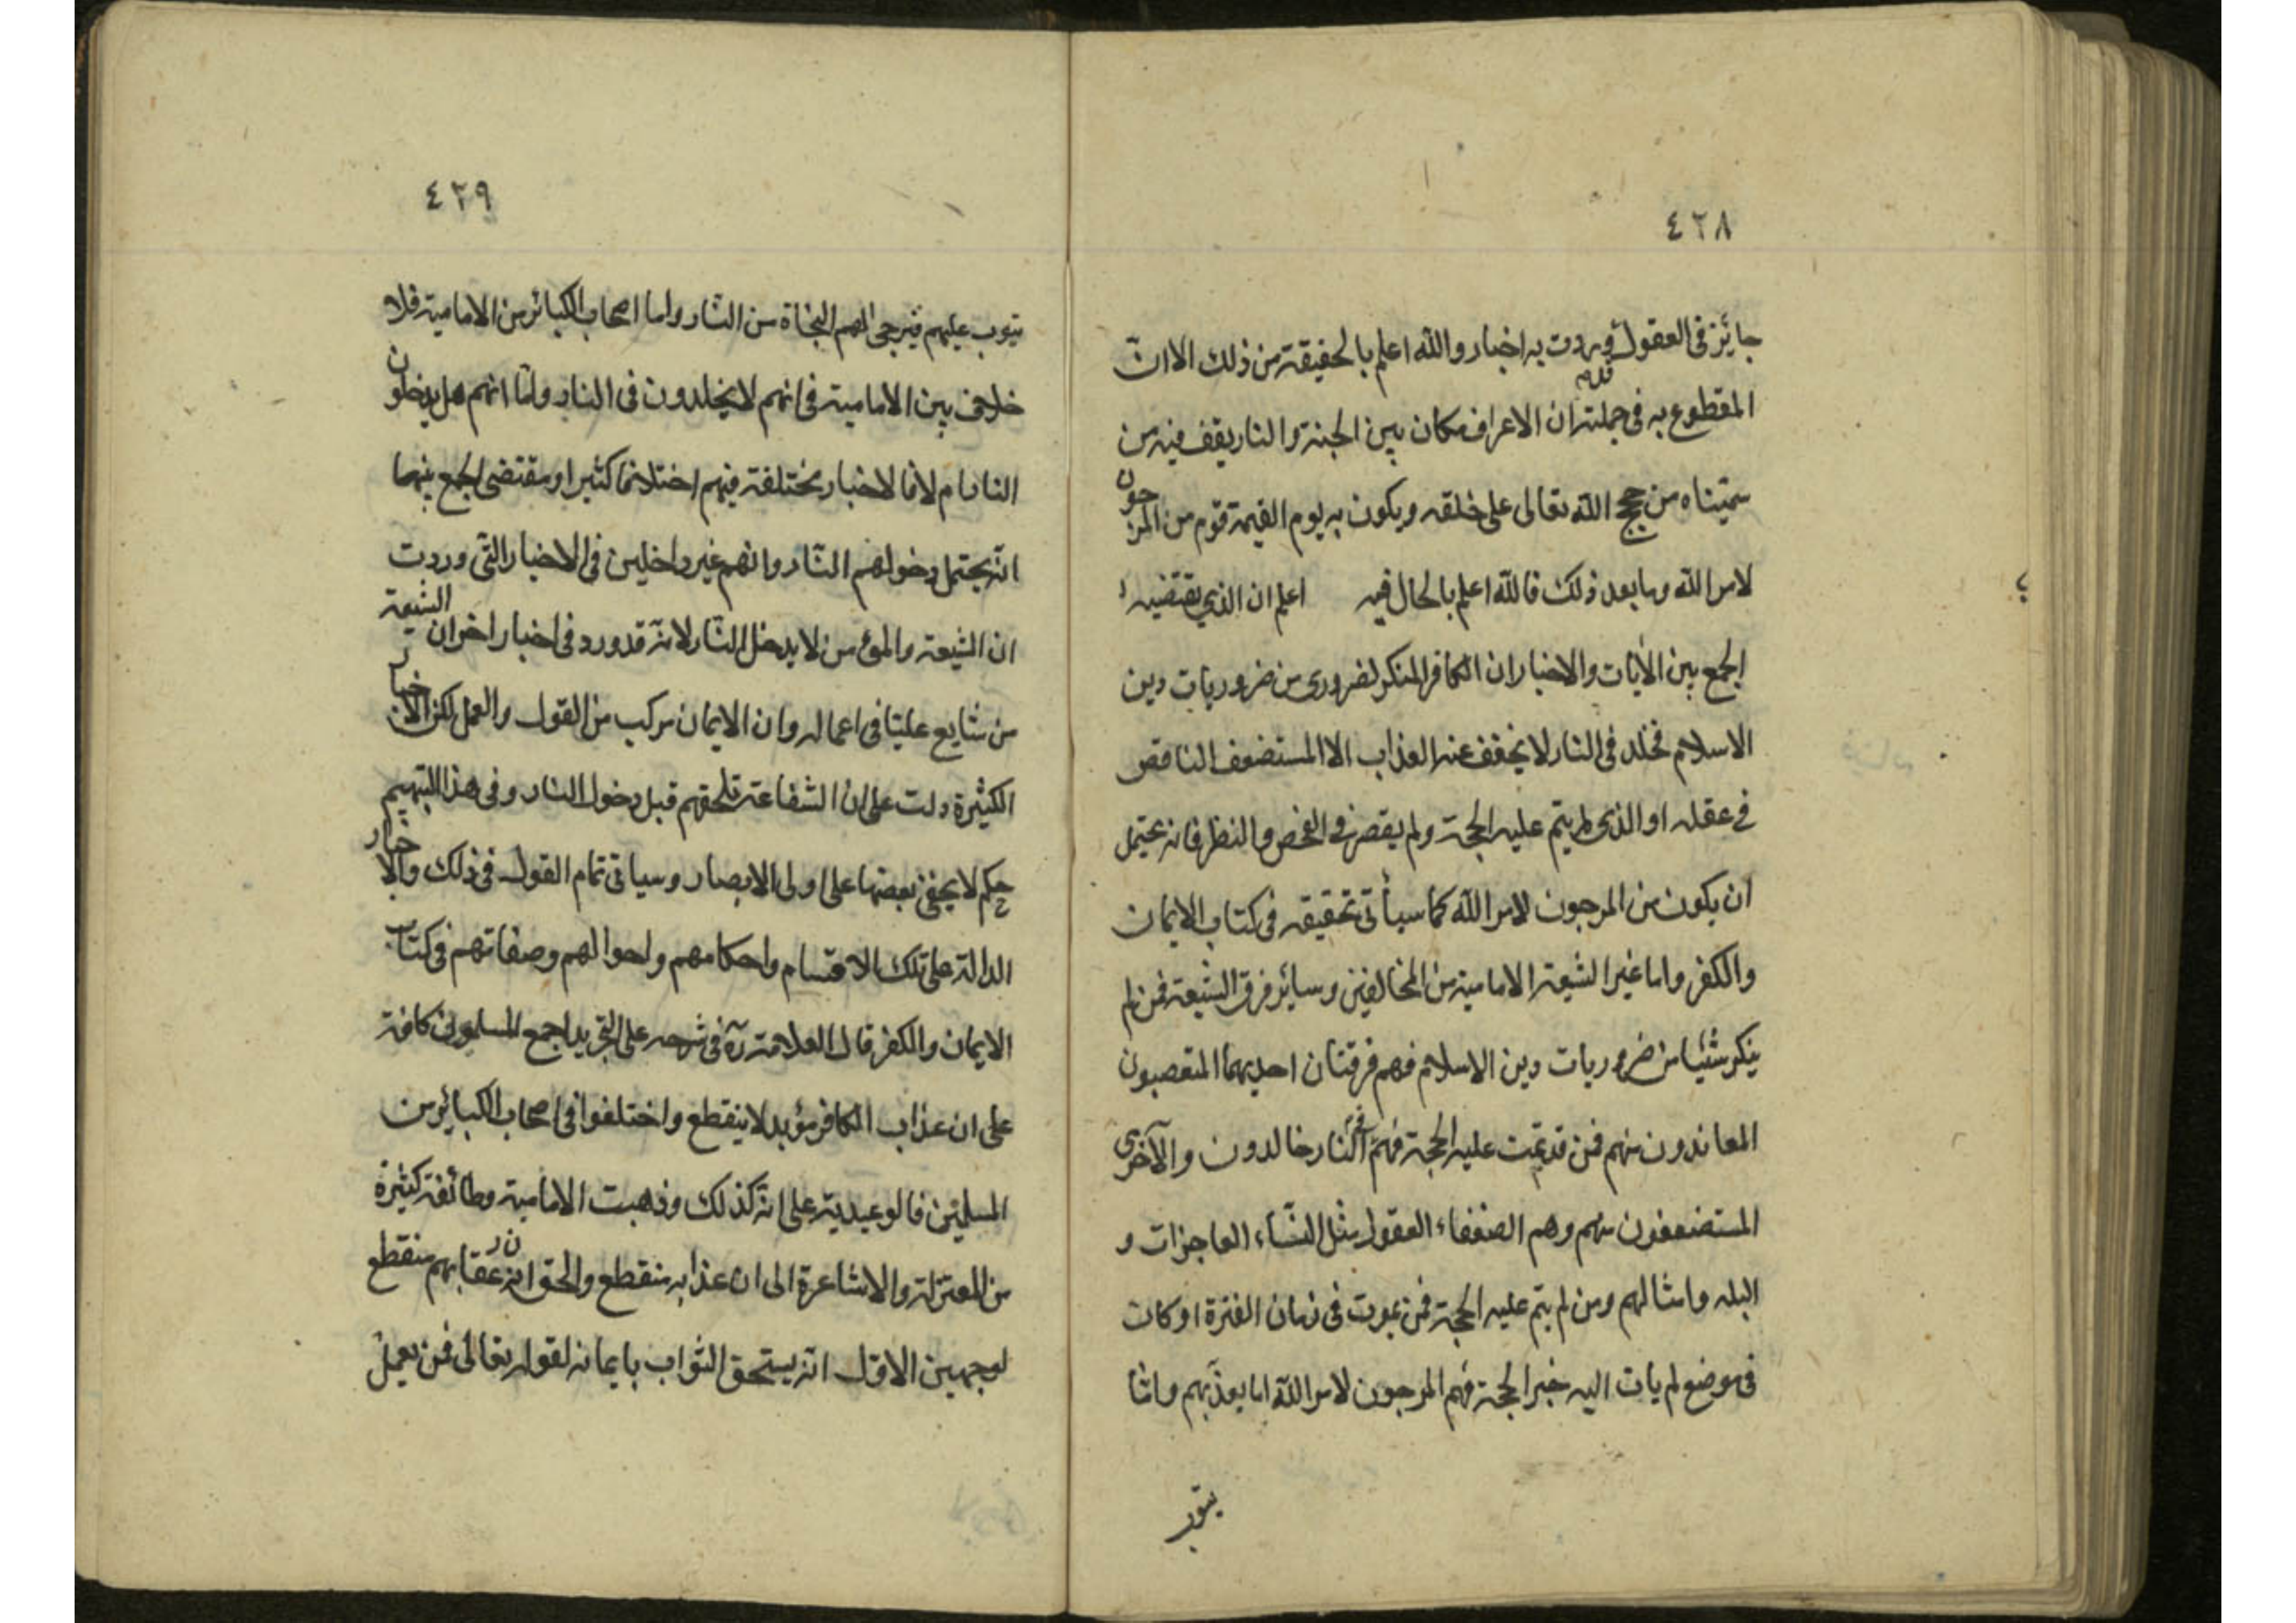 ٤٢٨
جايز في العقول قد وردت به اخبار والله اعلم بالحقيقة من ذلك الا انّ
المقطوع به في جملته ان الاعراف مكان بين الجنة والنار يقف فيه من
سمّيناه من حجج الله تعالى على خلقه ويكون به يوم القيمة قوم من المرجون
لامر الله وما بعد ذلك فالله اعلم بالحال فيه اعلم ان الذي يقتضيه
الجمع بين الآيات والاخبار ان الكافر المنكر لضروري من ضروريات دين
الاسلام مخلد في النار لا يخفف عنه العذاب الا المستضعف الناقص
في عقله او الذي لم يتم عليه الحجة ولم يقصر في الفحص والنظر فانه يحتمل
ان يكون من المرجون لامر الله كما سيأتي تحقيقه في كتاب الايمان
والكفر واما غير الشيعة الامامية من المخالفين وسائر فرق الشيعة فمن لم
ينكر شيئا من ضروريات دين الاسلام فهم فرقتان احديهما المتعصبون
المعاندون منهم فمن قد تمّت عليه الحجة فهم في النار خالدون والآخرى
المستضعفون منهم وهم الضعفاء العقول مثل النّساء العاجزات و
البله وامثالهم ومن لم يتم عليه الحجة فمن يموت في زمان الفترة او كان
في موضع لم يات اليه خبر الحجة فهم المرجون لامر الله اما يعذّبهم وامّا
يتوب
٤٢٩
يتوب عليهم فيرجى لهم النجاة من النّار واما اصحاب الكبائر من الامامية فلا
خلاف بين الامامية في انهم لا يخلدون في النار وامّا انهم هل يدخلون
النار ام لا فالاخبار مختلفة فيهم اختلافا كثيرا ومقتضى الجمع بينها
انّه يحتمل دخولهم النّار وانهم غير داخلين في الاخبار التي وردت
ان الشيعة والمؤمن لا يدخل النّار لانّه قد ورد في اخبار اخر ان الشيعة
من شايع عليّا في اعماله وان الايمان مركب من القول والعمل لكن الاخبار
الكثيرة دلت على ان الشفاعة تلحقهم قبل دخول النار وفي هذا التبهيم
حكم لا يخفى بعضها على اولى الابصار وسياتي تمام القول في ذلك والاخبار
الدالة على تلك الاقسام واحكامهم واحوالهم وصفاتهم في كتاب
الايمان والكفر قال العلامة ره في شرحه على التجريد اجمع المسلمون كافة
على ان عذاب الكافر مؤبد لا ينقطع واختلفوا في اصحاب الكبائر من
المسلمين فالوعيدية على انّه كذلك وذهبت الامامية وطائفة كثيرة
من المعتزلة والاشاعرة الى ان عذابه منقطع والحق ان عقابهم منقطع
لوجهين الاوّل انّه يستحق الثواب بايمانه لقوله تعالى فمن يعمل